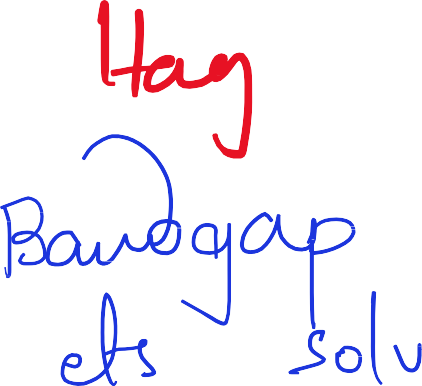 Hag
Bandgap
ets solv